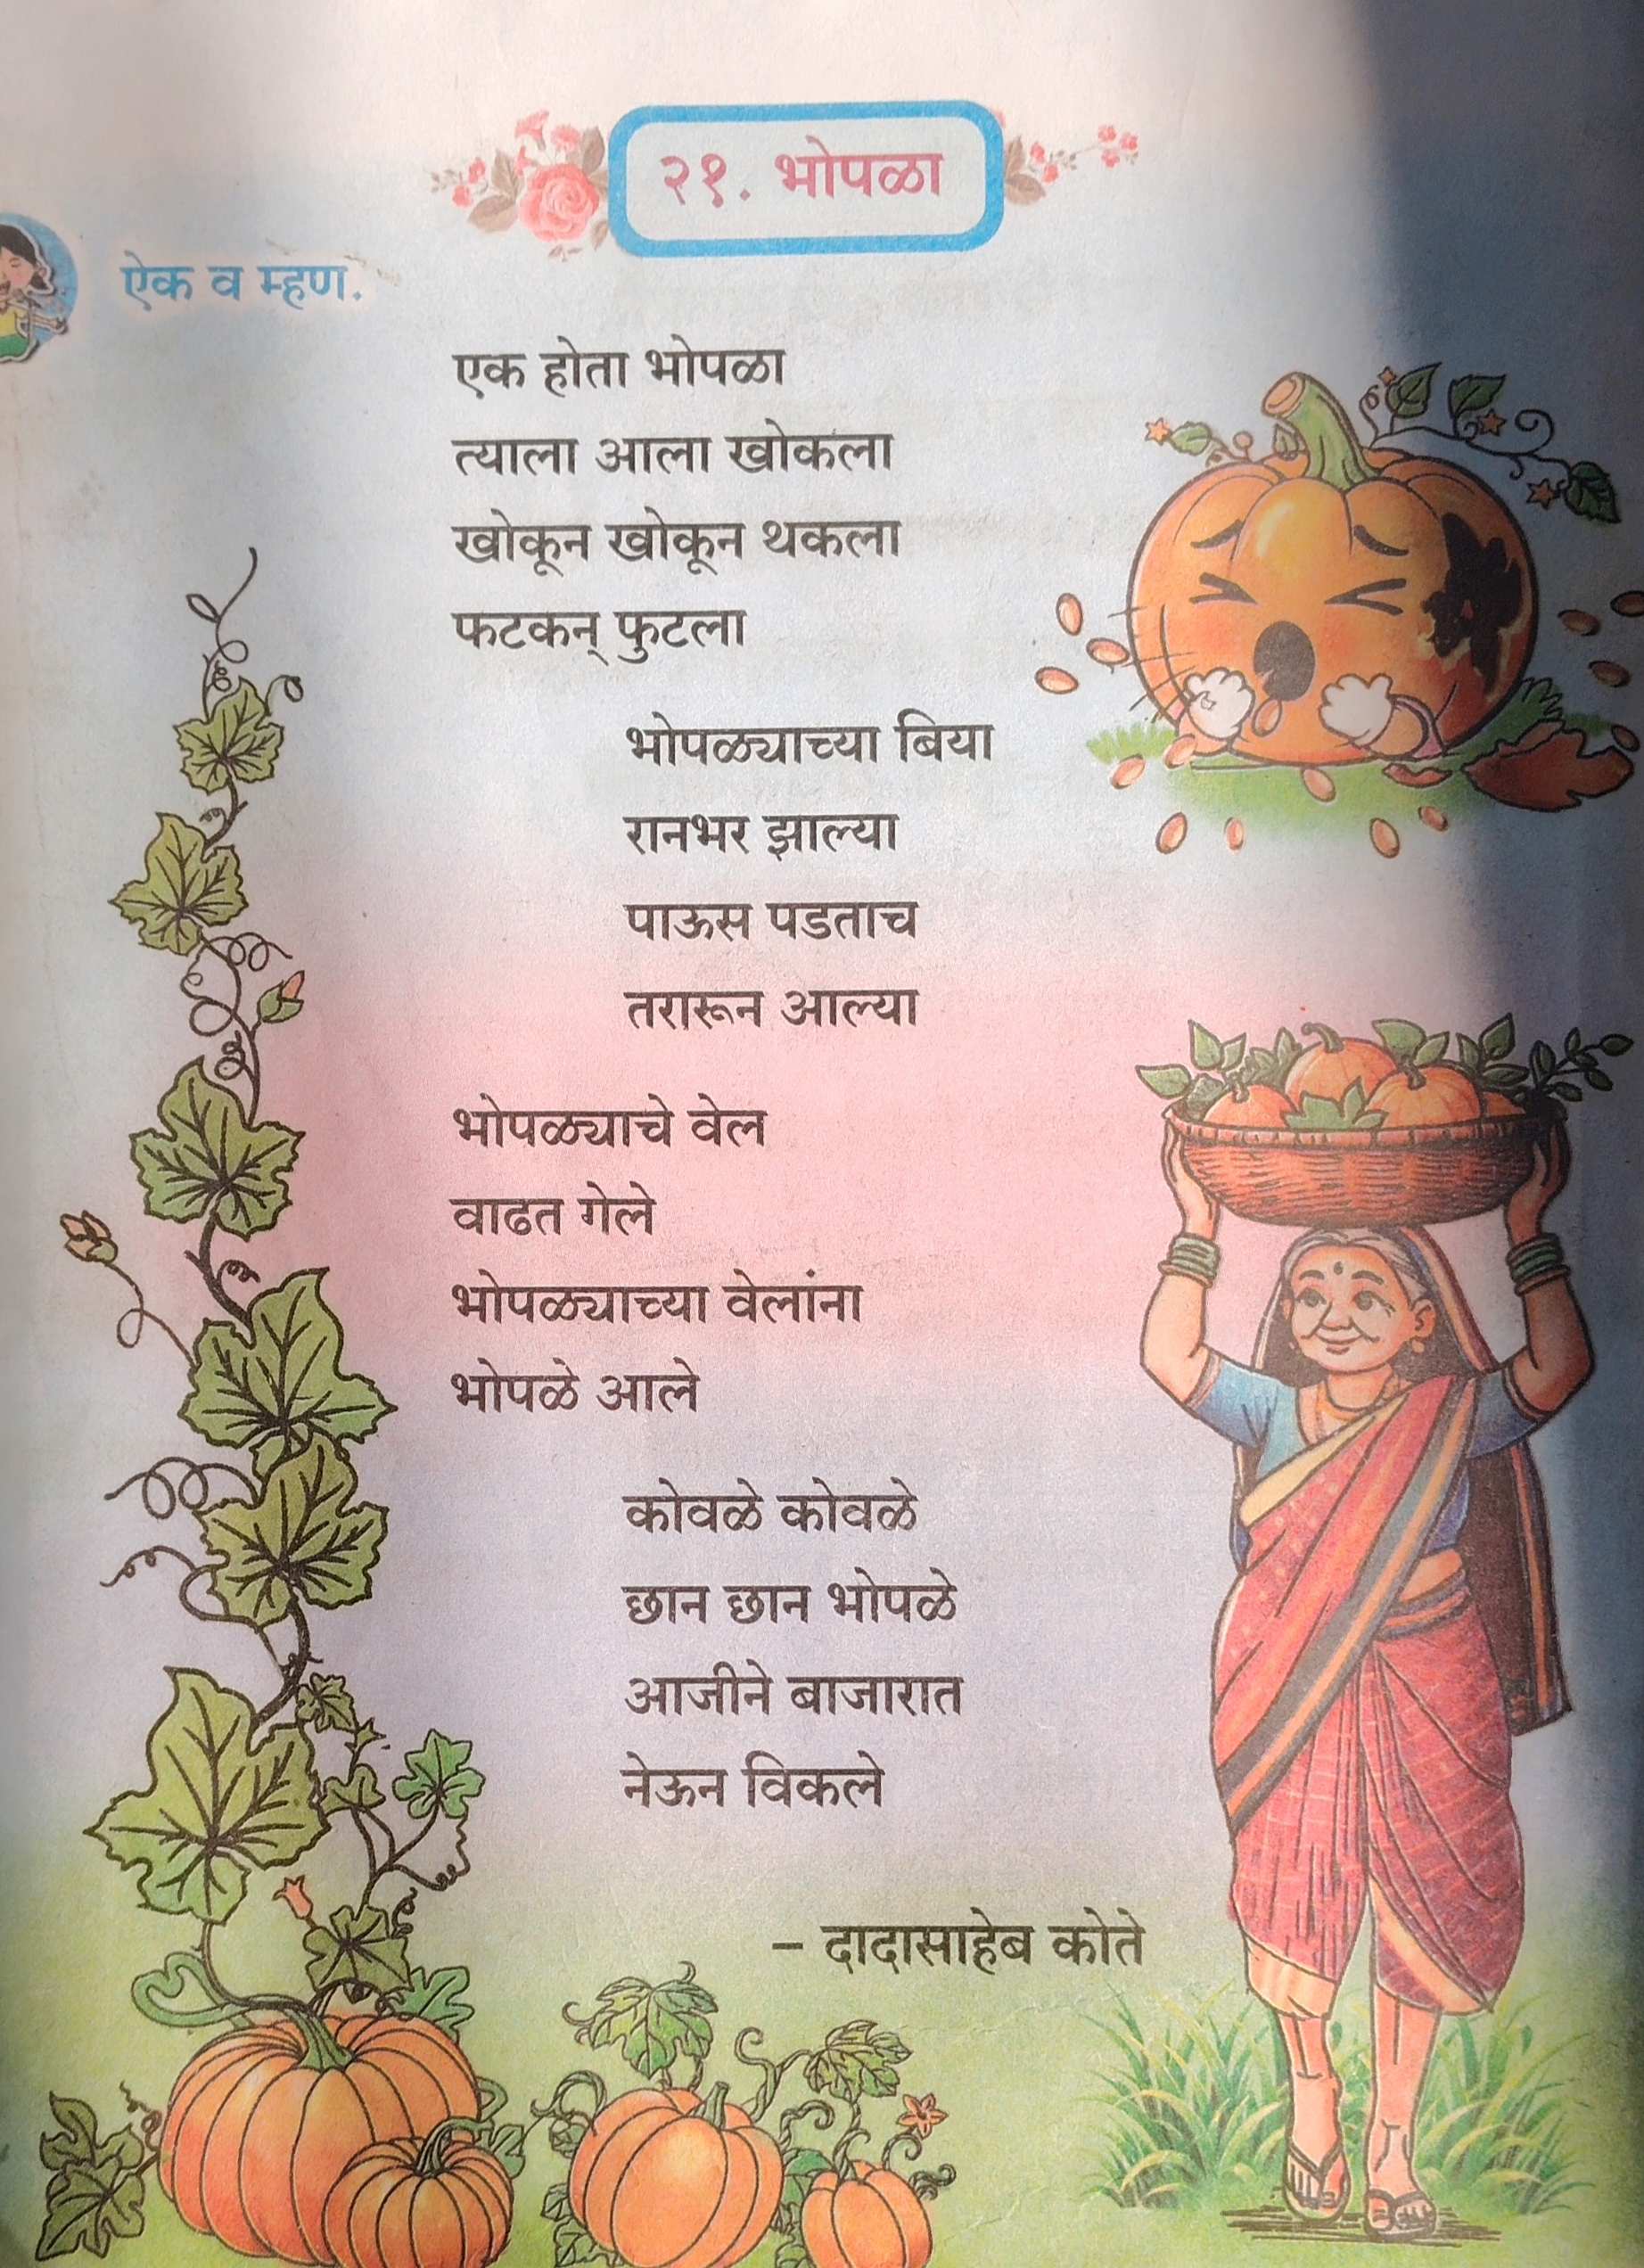 २१. भोपळा
ऐक व म्हण.
एक होता भोपळा
त्याला आला खोकला
खोकून खोकून थकला
फटकन् फुटला
भोपळ्याच्या बिया
रानभर झाल्या
पाऊस पडताच
तरारून आल्या
भोपळ्याचे वेल
वाढत गेले
भोपळ्याच्या वेलांना
भोपळे आले
कोवळे कोवळे
छान छान भोपळे
आजीने बाजारात
नेऊन विकले
– दादासाहेब कोते